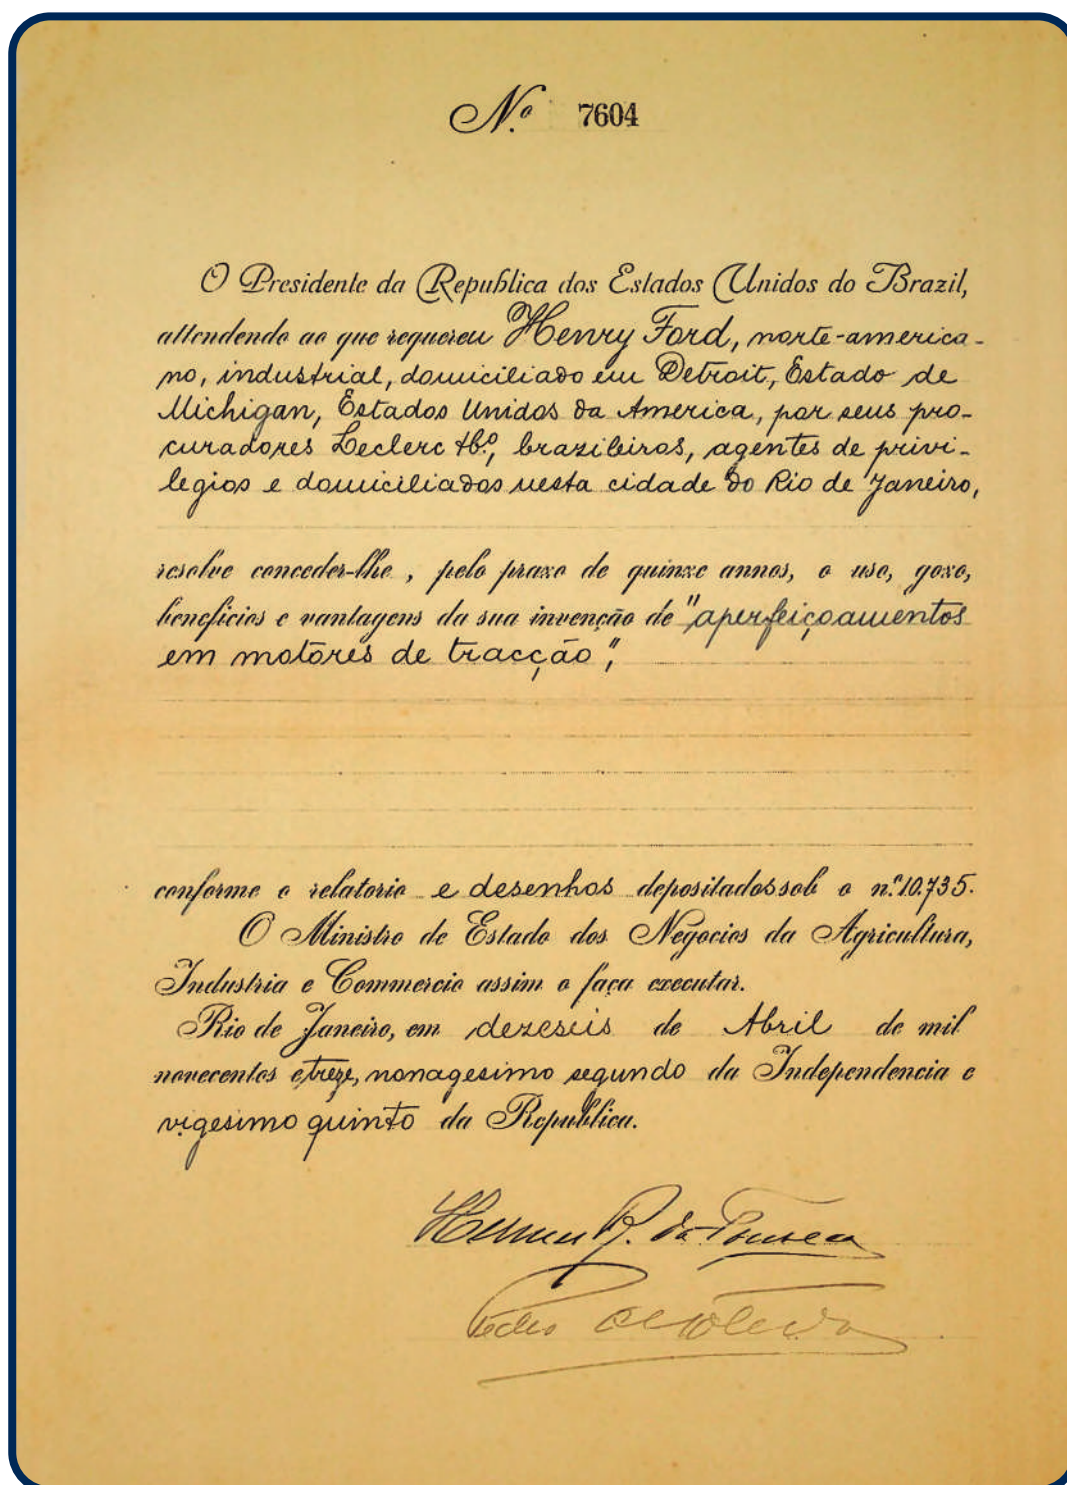 Nº 7604
O Presidente da Republica dos Estados Unidos do Brazil,
attendendo ao que requereu Henry Ford, norte-america-
no, industrial, domiciliado em Detroit, Estado de
Michigan, Estados Unidos da America, por seus pro-
curadores Leclerc & Cº, brazileiros, agentes de privi-
legios e domiciliados nesta cidade do Rio de Janeiro,
resolve conceder-lhe, pelo prazo de quinze annos, o uso, gozo,
beneficios e vantagens da sua invenção de "aperfeiçoamentos
em motôres de tracção",
conforme o relatorio e desenhos depositados sob o n.º 10.735.
O Ministro de Estado dos Negocios da Agricultura,
Industria e Commercio assim o faça executar.
Rio de Janeiro, em dezeseis de Abril de mil
novecentos e treze, nonagesimo segundo da Independencia e
vigesimo quinto da Republica.
Hermes R. da Fonseca
Pedro de Toledo